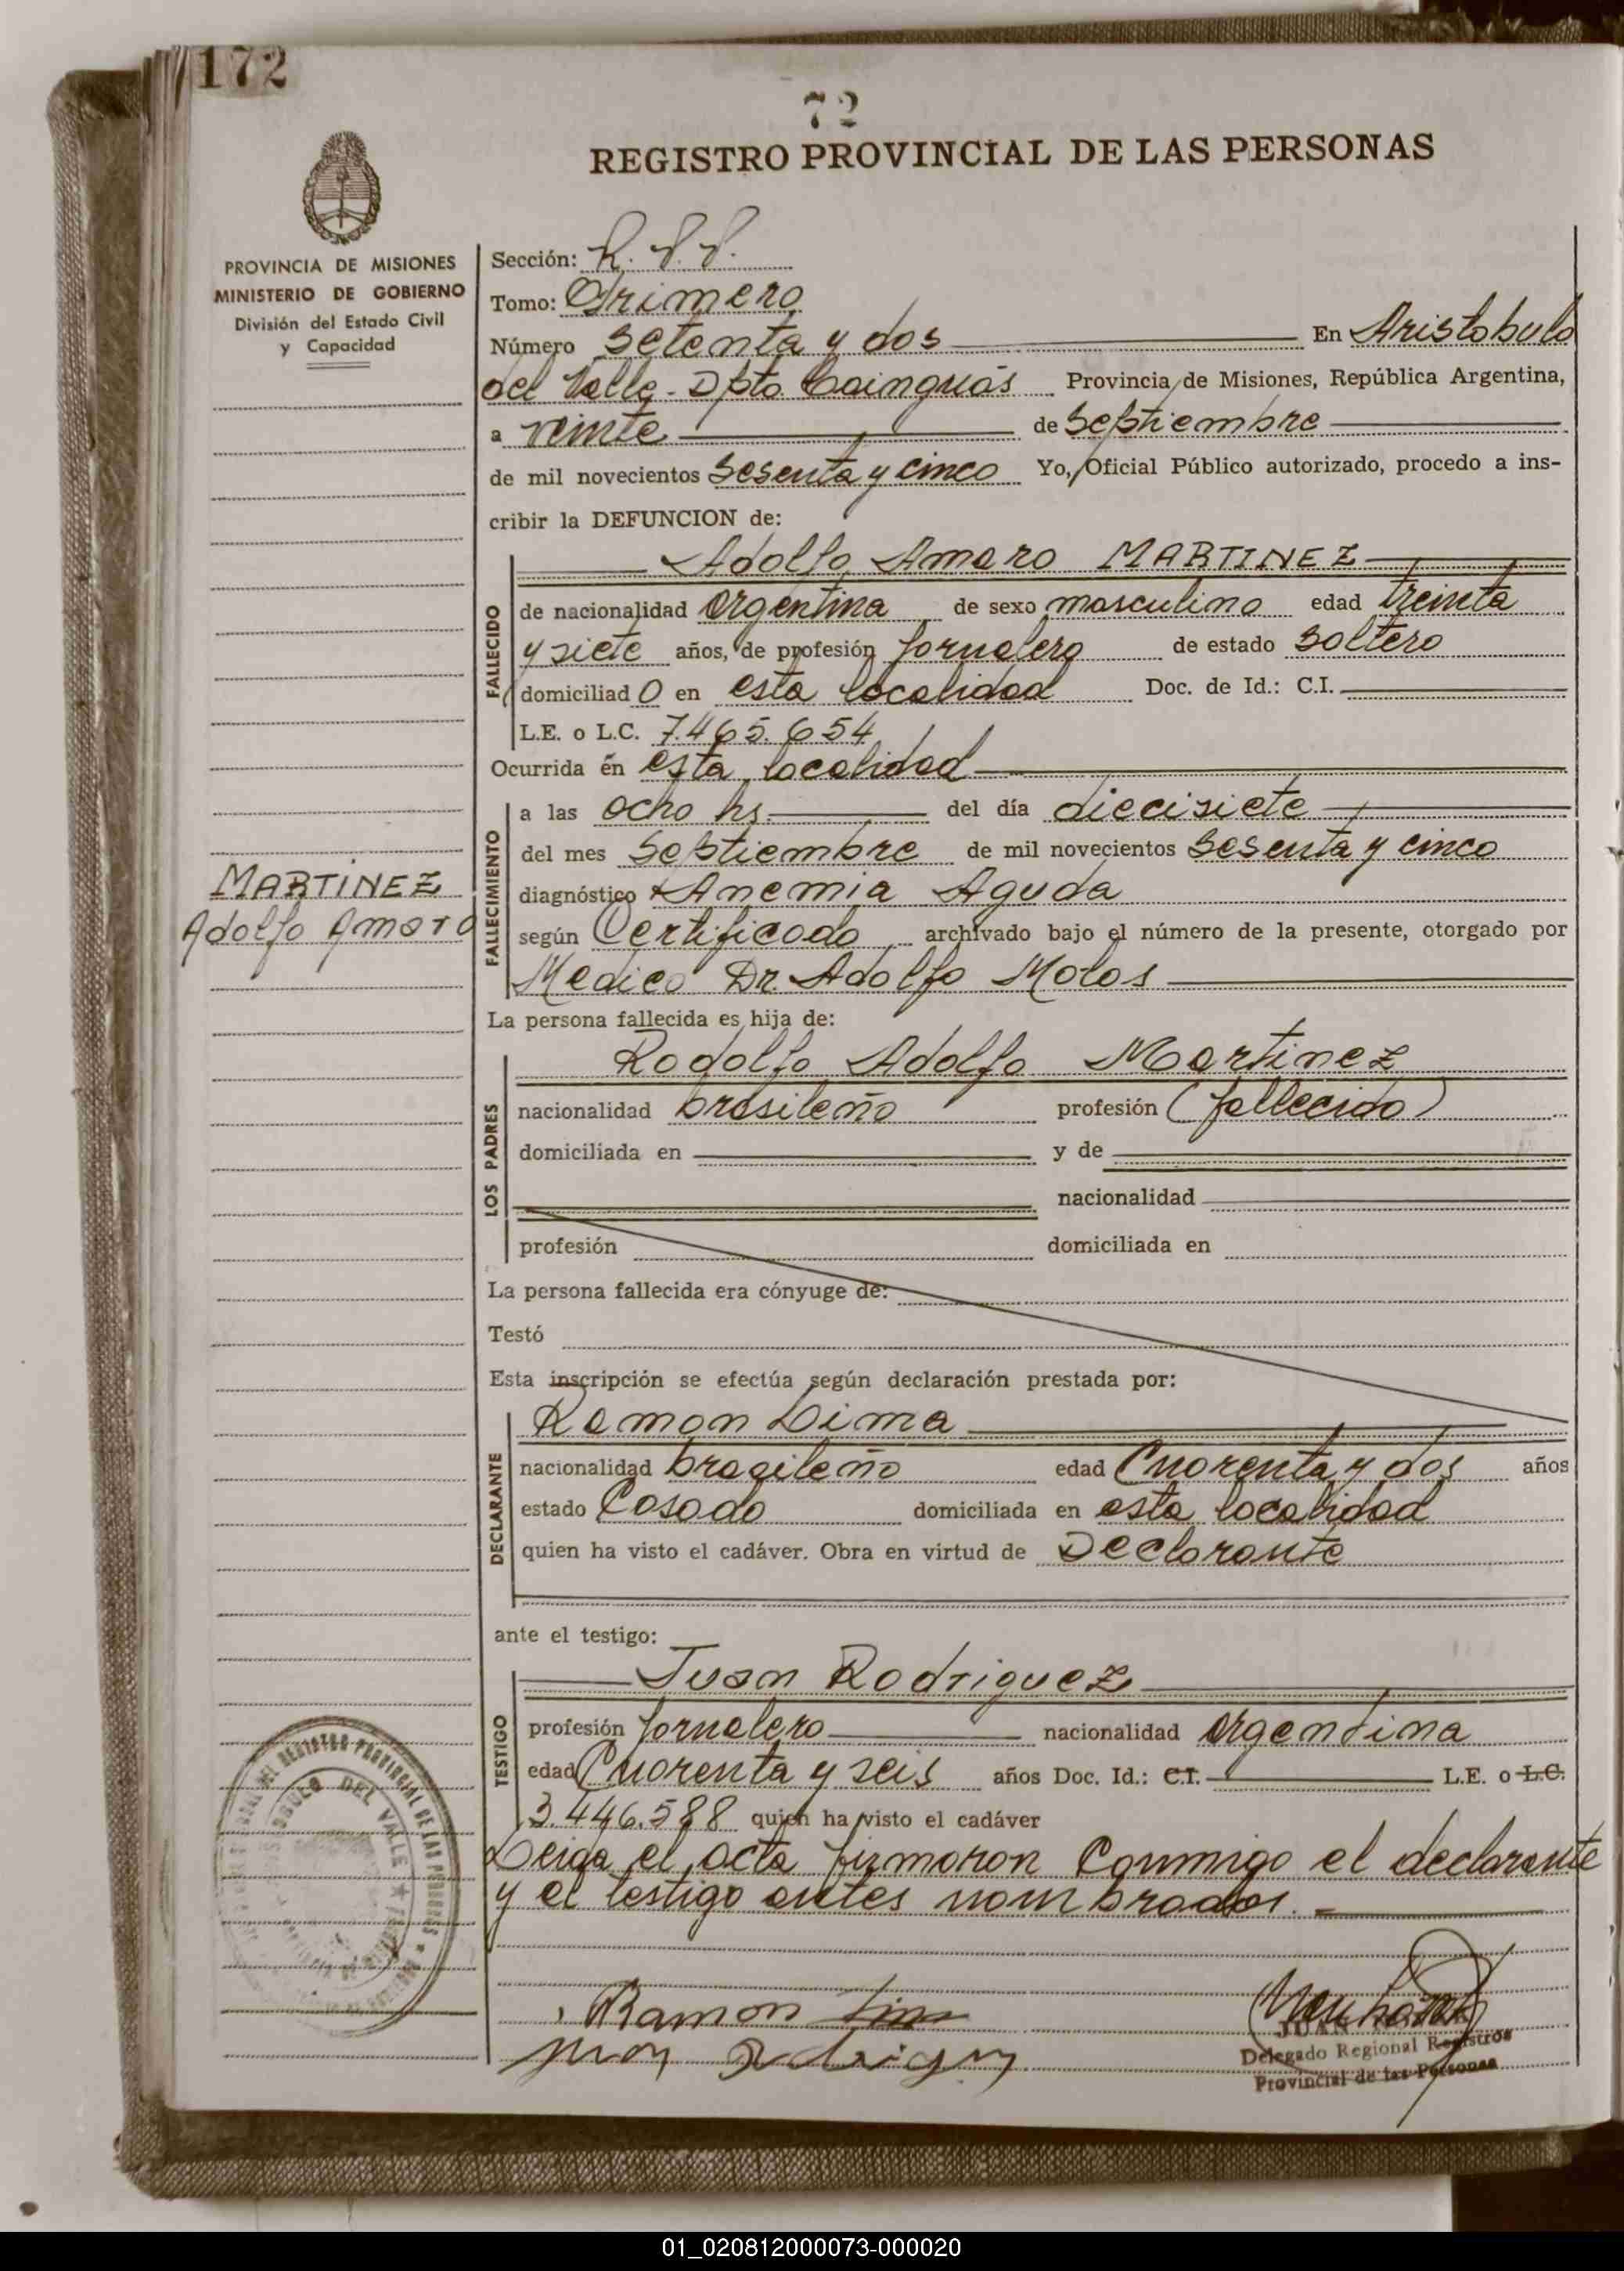 172
72
REGISTRO PROVINCIAL DE LAS PERSONAS
PROVINCIA DE MISIONES
MINISTERIO DE GOBIERNO
División del Estado Civil
y Capacidad
Sección:
Tomo: Primero
Número setenta y dos En Aristobulo
del Valle - Dpto. Cainguás Provincia de Misiones, República Argentina,
a veinte de Septiembre
de mil novecientos sesenta y cinco Yo, Oficial Público autorizado, procedo a ins-
cribir la DEFUNCION de:
Adolfo Amaro MARTINEZ
FALLECIDO
de nacionalidad argentina de sexo masculino edad treinta
y siete años, de profesión jornalero de estado soltero
domiciliado en esta localidad Doc. de Id.: C.I.
L.E. o L.C. 7.465.654
Ocurrida en esta localidad
FALLECIMIENTO
a las ocho hs. del día diecisiete
del mes Septiembre de mil novecientos sesenta y cinco
diagnóstico Anemia Aguda
según Certificado archivado bajo el número de la presente, otorgado por
Medico Dr. Adolfo Molas
MARTINEZ
Adolfo Amaro
La persona fallecida es hija de:
LOS PADRES
Rodolfo Adolfo Martinez
nacionalidad brasileño profesión (fallecido)
domiciliada en y de
nacionalidad
profesión domiciliada en
La persona fallecida era cónyuge de:
Testó
Esta inscripción se efectúa según declaración prestada por:
DECLARANTE
Ramon Lima
nacionalidad brasileño edad Cuarenta y dos años
estado Casado domiciliada en esta localidad
quien ha visto el cadáver. Obra en virtud de Declarante
ante el testigo:
TESTIGO
Juan Rodriguez
profesión jornalero nacionalidad argentina
edad Cuarenta y seis años Doc. Id.: C.I. L.E. o L.C.
3.446.588 quien ha visto el cadáver
Leida el acta firmaron Conmigo el declarante
y el testigo antes nombrados.
Ramon Lima
Juan Rodriguez
JUAN
Delegado Regional Registros
Provincial de las Personas
DEL REGISTRO PROVINCIAL DE LAS PERSONAS
DEL VALLE
01_020812000073-000020